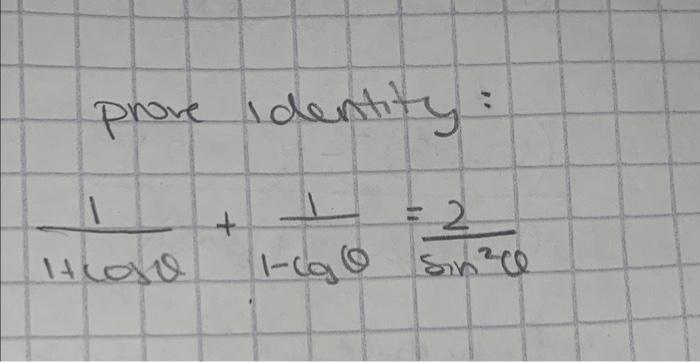 prove identity:
1/(1+cosθ) + 1/(1-cosθ) = 2/sin²θ